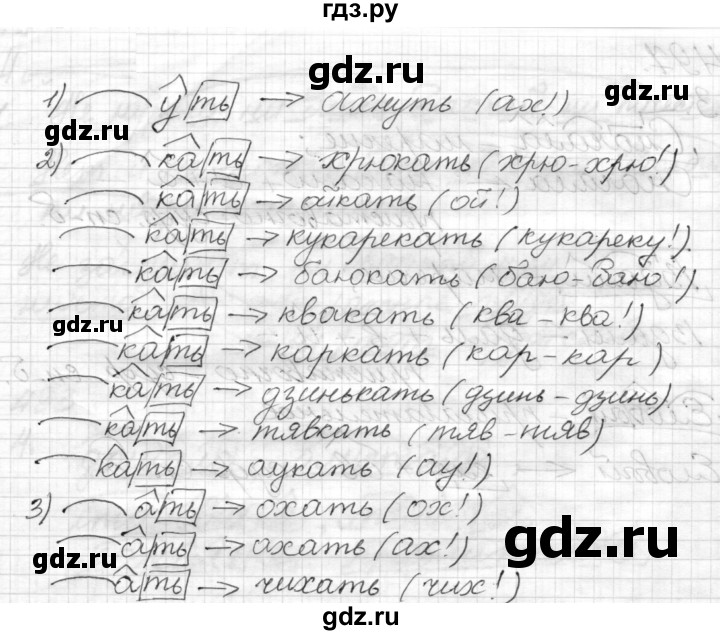 гдз.ру
gdz.ru
1) уть → ахнуть (ах!)
gdz.ru
2) кать → хрюкать (хрю-хрю!)
gdz.ru
кать → ойкать (ой!)
кать → кукарекать (кукареку!).
gdz.ru
кать → баюкать (баю-баю!).
gdz.ru
кать → квакать (ква-ква!)
кать → каркать (кар-кар)
gdz.ru
кать → дзинькать (дзинь-дзинь)
кать → тявкать (тяв-тяв)
кать → аукать (ау!).
3) ать → охать (ох!)
gdz.ru
ать → ахать (ах!)
gdz.ru
ать → чихать (чих!)
gdz.ru
gdz.ru